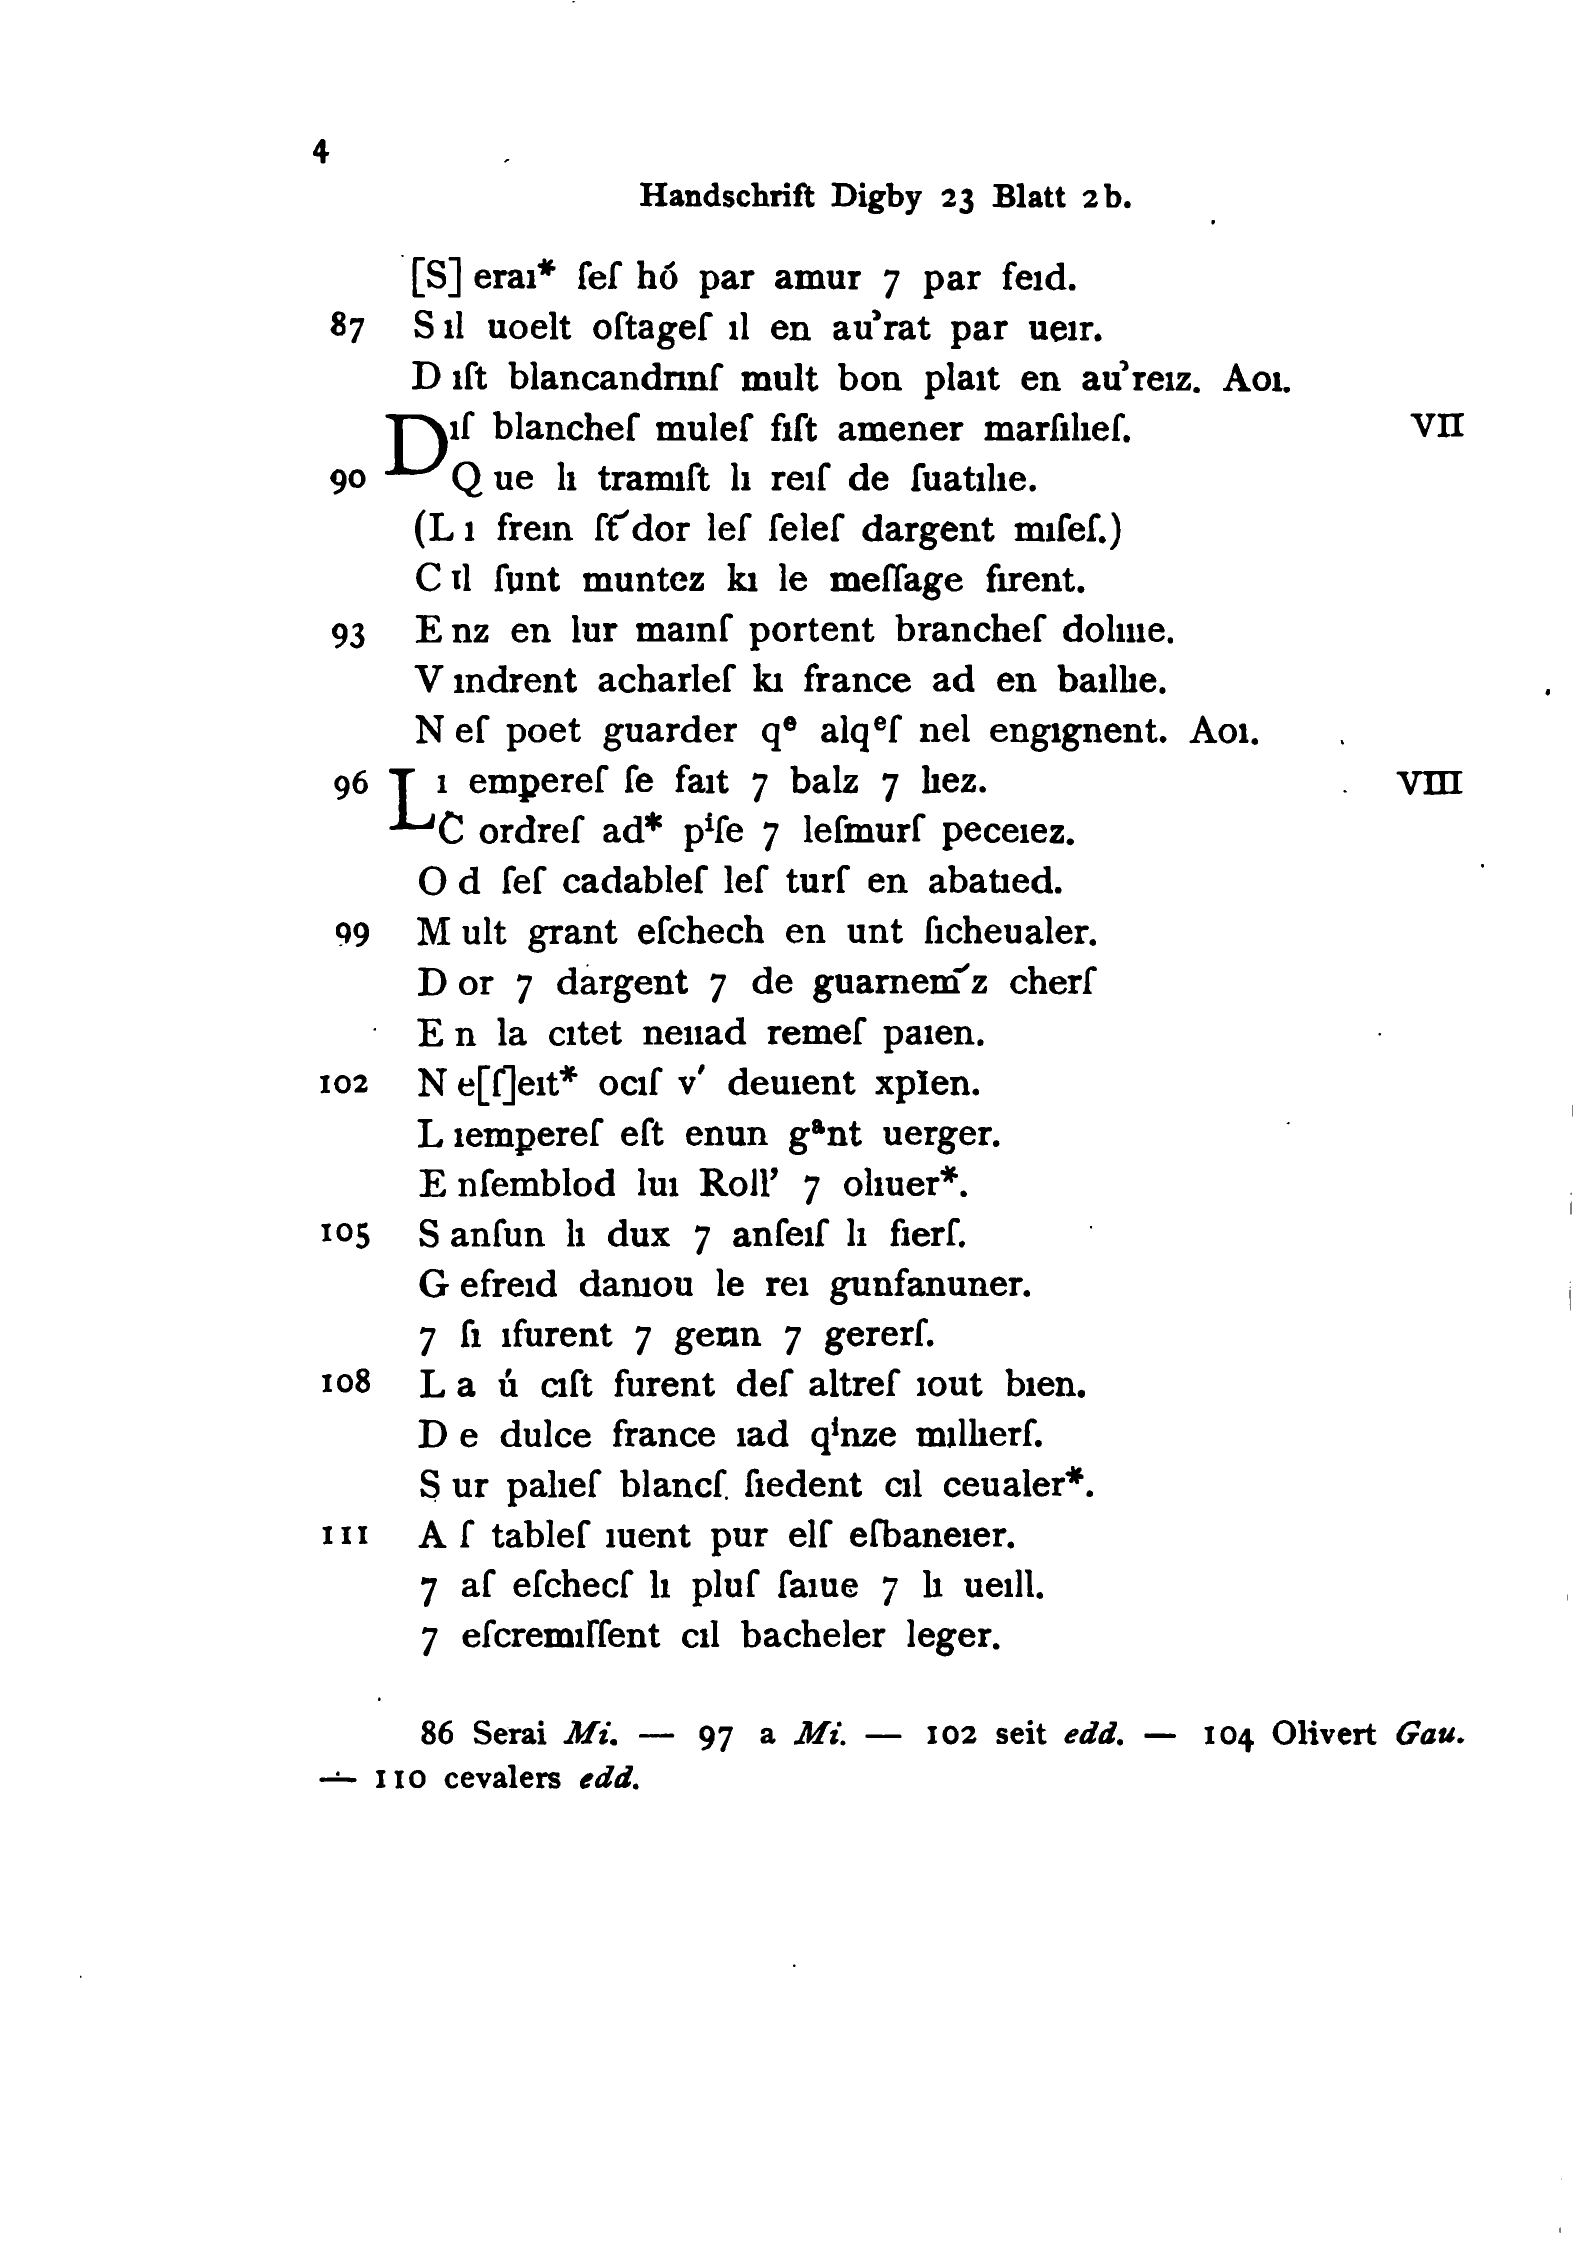 4
Handschrift Digby 23 Blatt 2b.
[S] eraı* ſeſ hó par amur 7 par feıd.
87 S ıl uoelt oſtageſ ıl en au’rat par ueır.
D ıſt blancandrınſ mult bon plaıt en au’reız. Aoı.
Dıſ blancheſ muleſ fıſt amener marſılıeſ. VII
90 Q ue lı tramıſt lı reıſ de ſuatılıe.
(L ı freın ſt̄ dor leſ ſeleſ dargent mıſeſ.)
C ıl ſunt muntez kı le meſſage fırent.
93 E nz en lur maınſ portent brancheſ dolıue.
V ındrent acharleſ kı france ad en baıllıe.
N eſ poet guarder qᵉ alqᵉſ nel engıgnent. Aoı.
96 L ı empereſ ſe faıt 7 balz 7 lıez. VIII
C̄ ordreſ ad* pⁱſe 7 leſmurſ peceıez.
O d ſeſ cadableſ leſ turſ en abatıed.
99 M ult grant eſchech en unt ſıcheualer.
D or 7 dargent 7 de guarnem̄ z cherſ
E n la cıtet neııad remeſ paıen.
102 N e[ſ]eıt* ocıſ v′ deuıent xpīen.
L ıempereſ eſt enun gᵃnt uerger.
E nſemblod luı Roll’ 7 olıuer*.
105 S anſun lı dux 7 anſeıſ lı fıerſ.
G efreıd danıou le reı gunfanuner.
7 ſı ıfurent 7 gerın 7 gererſ.
108 L a ú cıſt furent deſ altreſ ıout bıen.
D e dulce france ıad qⁱnze mıllıerſ.
S ur palıeſ blancſ ſıedent cıl ceualer*.
111 A ſ tableſ ıuent pur elſ eſbaneıer.
7 aſ eſchecſ lı pluſ ſaıue 7 lı ueıll.
7 eſcremıſſent cıl bacheler leger.
86 Serai Mi. — 97 a Mi. — 102 seit edd. — 104 Olivert Gau.
— 110 cevalers edd.